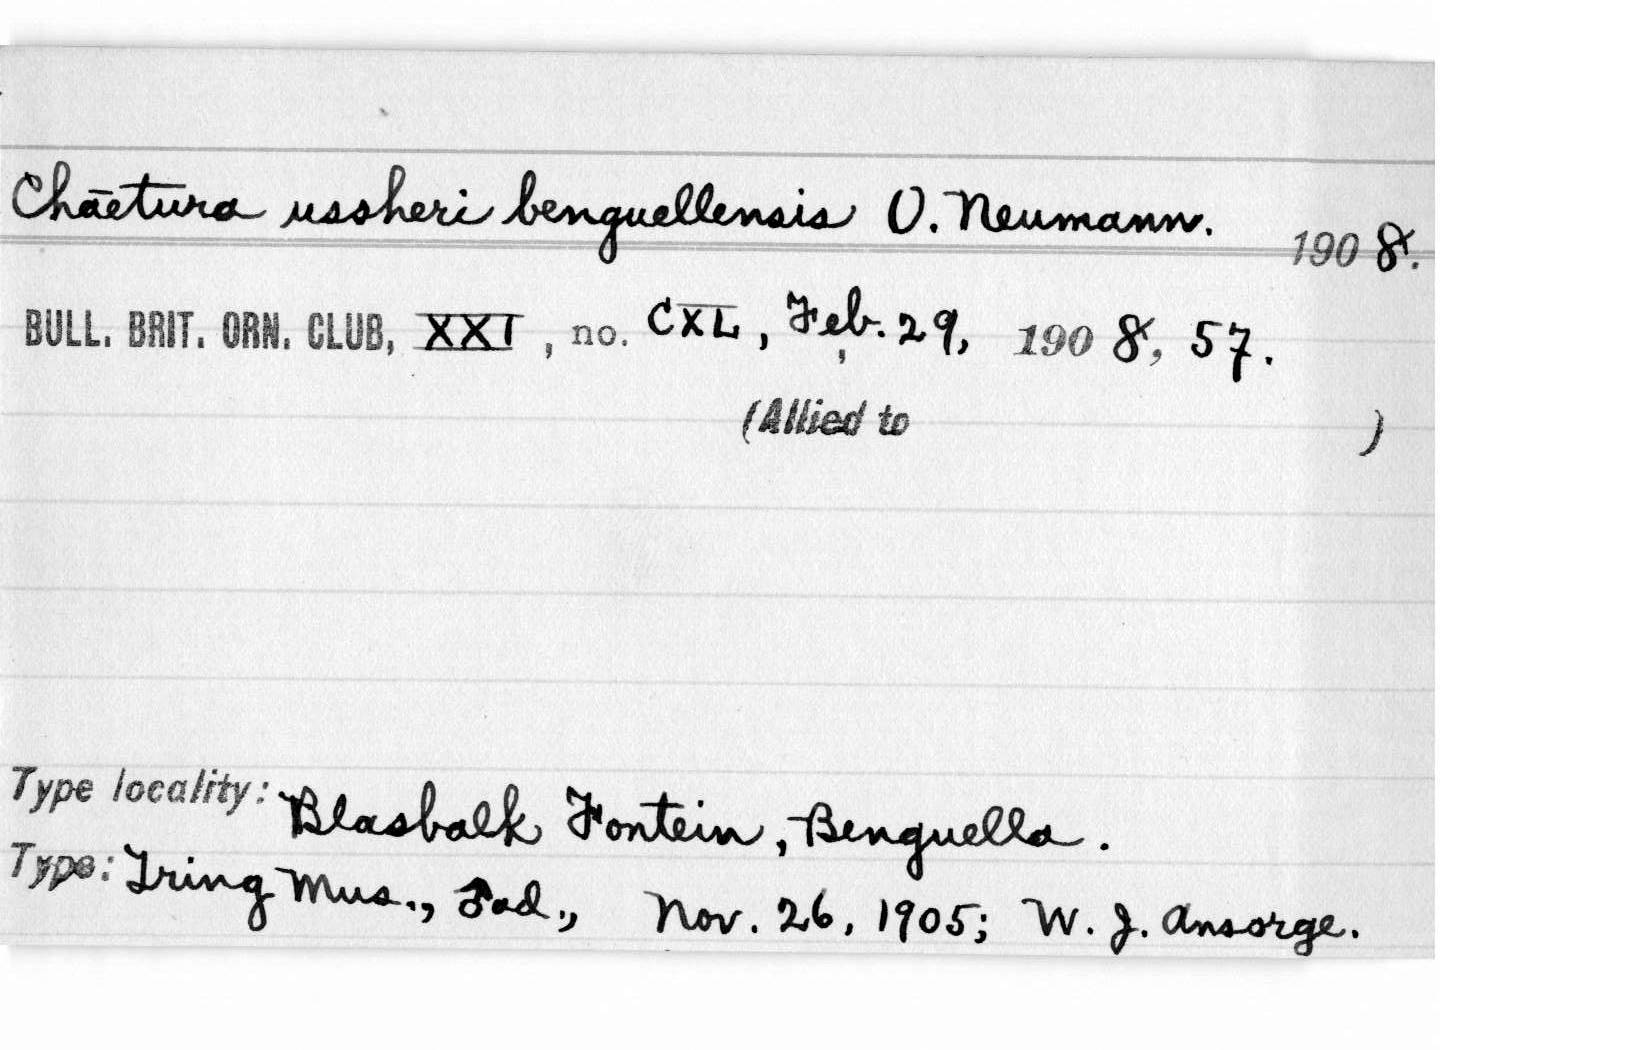 Chāetura ussheri benguellensis O. Neumann. 1908.
BULL. BRIT. ORN. CLUB, XXI, no. CXL, Feb. 29, 1908, 57.
(Allied to )
Type locality: Blasbalk Fontein, Benguella.
Type: Tring Mus., ♂ad., Nov. 26, 1905; W. J. Ansorge.